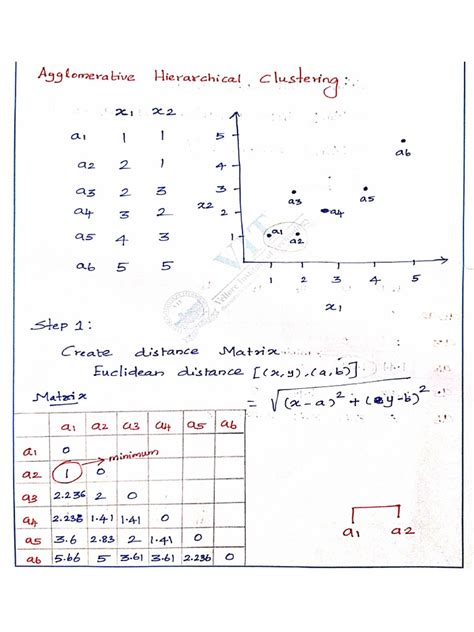 Agglomerative Hierarchical Clustering:
x1 x2
a1 1 1
a2 2 1
a3 2 3
a4 3 2
a5 4 3
a6 5 5
5
4
3
2
1
x2
a6
a3
a4
a5
a1
a2
1 2 3 4 5
x1
VIT
Step 1:
Create distance Matrix
Euclidean distance [(x,y),(a,b)]
= √(x-a)² + (y-b)²
Matrix
a1 a2 a3 a4 a5 a6
a1 0
minimum
a2 1 0
a3 2.236 2 0
a4 2.236 1.41 1.41 0
a5 3.6 2.83 2 1.41 0
a6 5.66 5 3.61 3.61 2.236 0
a1 a2